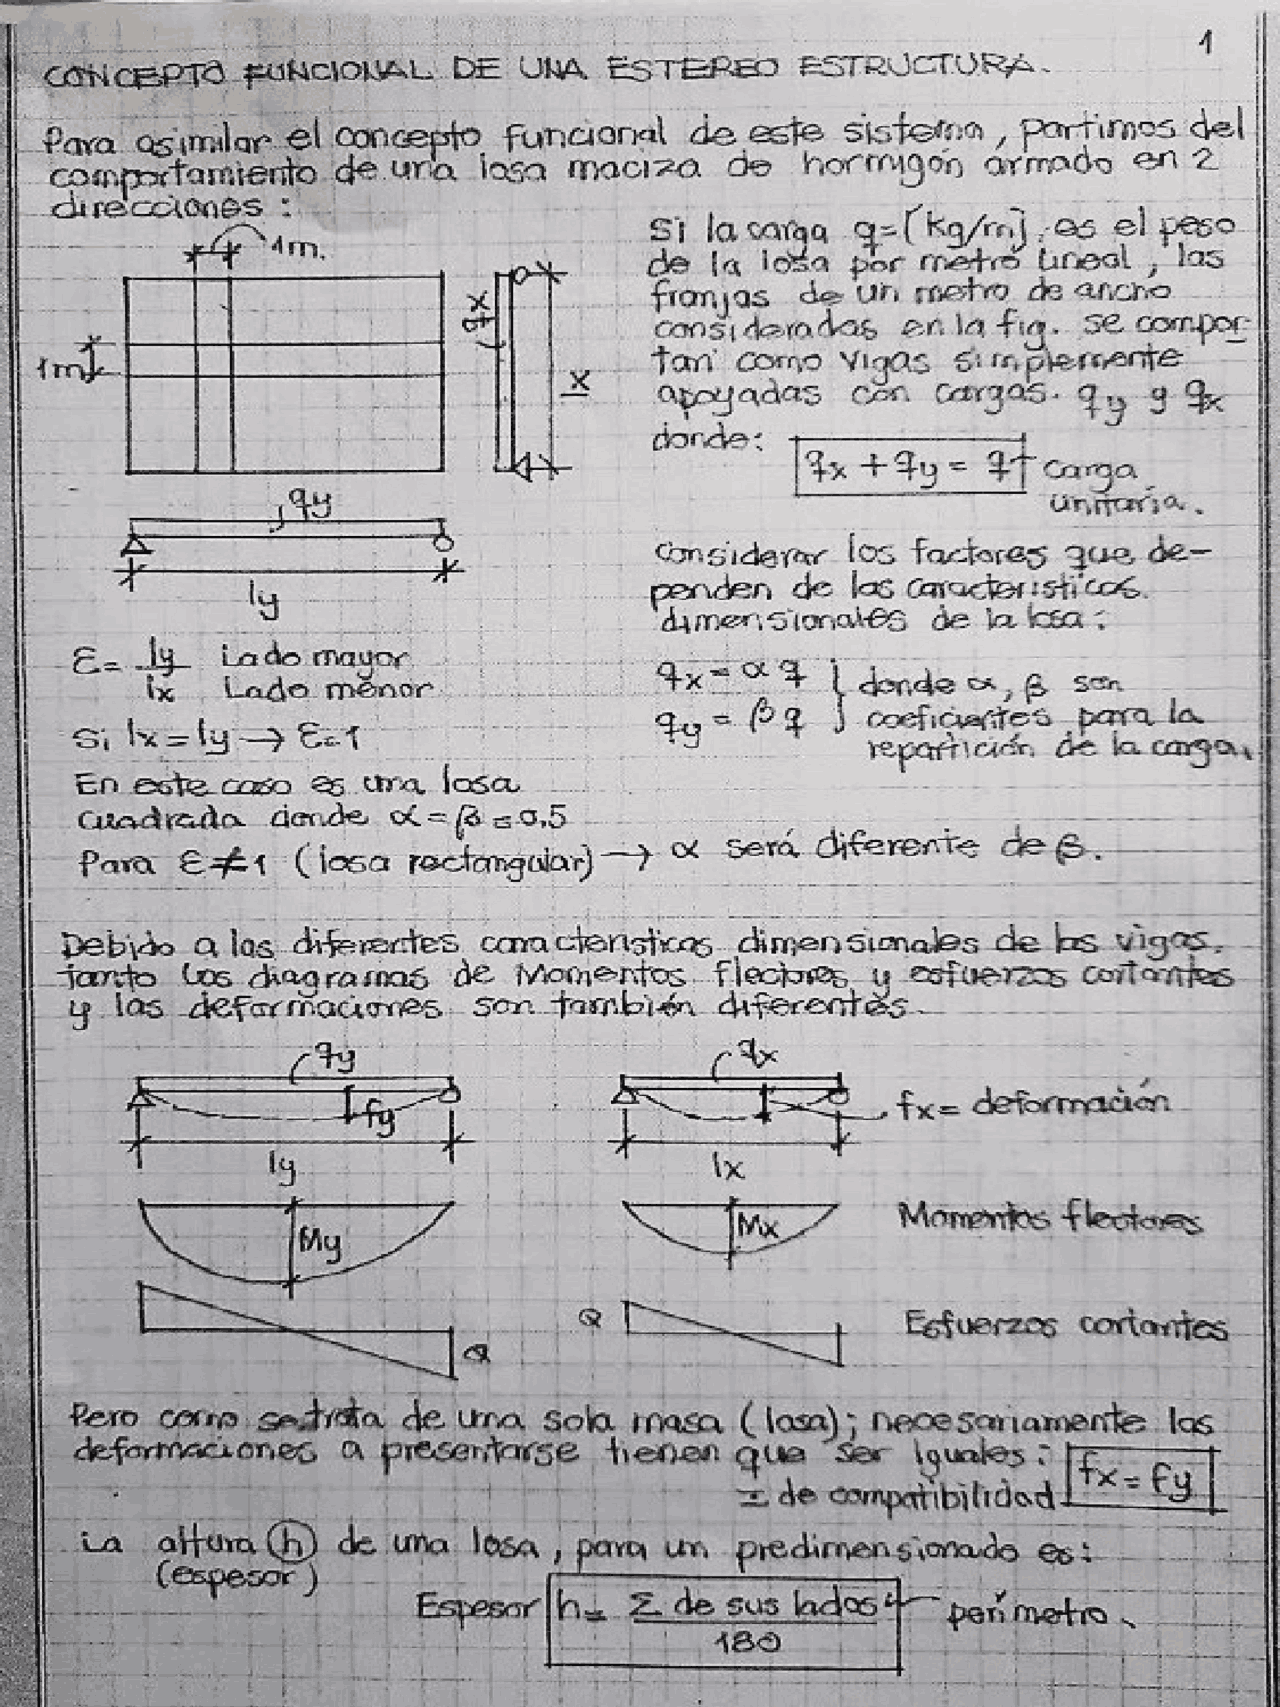 1
CONCEPTO FUNCIONAL DE UNA ESTEREO ESTRUCTURA.
Para asimilar el concepto funcional de este sistema, partimos del
comportamiento de una losa maciza de hormigón armado en 2
direcciones:
1m.
1m
qx
x
qy
ly
Si la carga q=[kg/m], es el peso
de la losa por metro lineal, las
franjas de un metro de ancho
consideradas en la fig. se compor-
tan como vigas simplemente
apoyadas con cargas. qy y qx
donde:
qx + qy = q
carga
unitaria.
Considerar los factores que de-
penden de las caracteristicas.
dimensionales de la losa:
qx = α q
qy = β q
donde α, β son
coeficientes para la
repartición de la carga.
Ɛ= ly Lado mayor
lx Lado menor
Si lx = ly → Ɛ=1
En este caso es una losa
cuadrada donde α = β = 0,5
Para Ɛ≠1 (losa rectangular) → α será diferente de β.
Debido a las diferentes caracteristicas dimensionales de las vigas.
tanto los diagramas de Momentos flectores y esfuerzos cortantes
y las deformaciones son también diferentes.
qy
qx
fy
fx = deformación
ly
lx
My
Mx
Momentos flectores
Q
Q
Esfuerzos cortantes
Pero como se trata de una sola masa (losa); necesariamente las
deformaciones a presentarse tienen que ser iguales:
I de compatibilidad
fx = fy
La altura (h) de una losa, para un predimensionado es:
(espesor)
Espesor h = Σ de sus lados
180
perímetro.